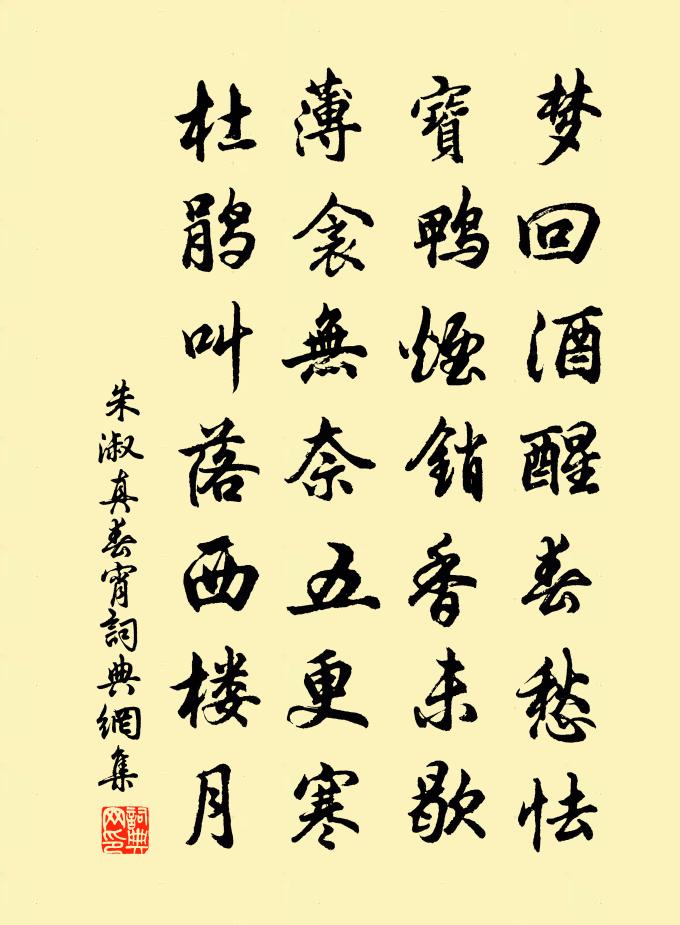 梦回酒醒春愁怯
寶鴨煙銷香未歇
薄衾無奈五更寒
杜鹃叫落西楼月
朱淑真春宵詞典網集
詞典网印